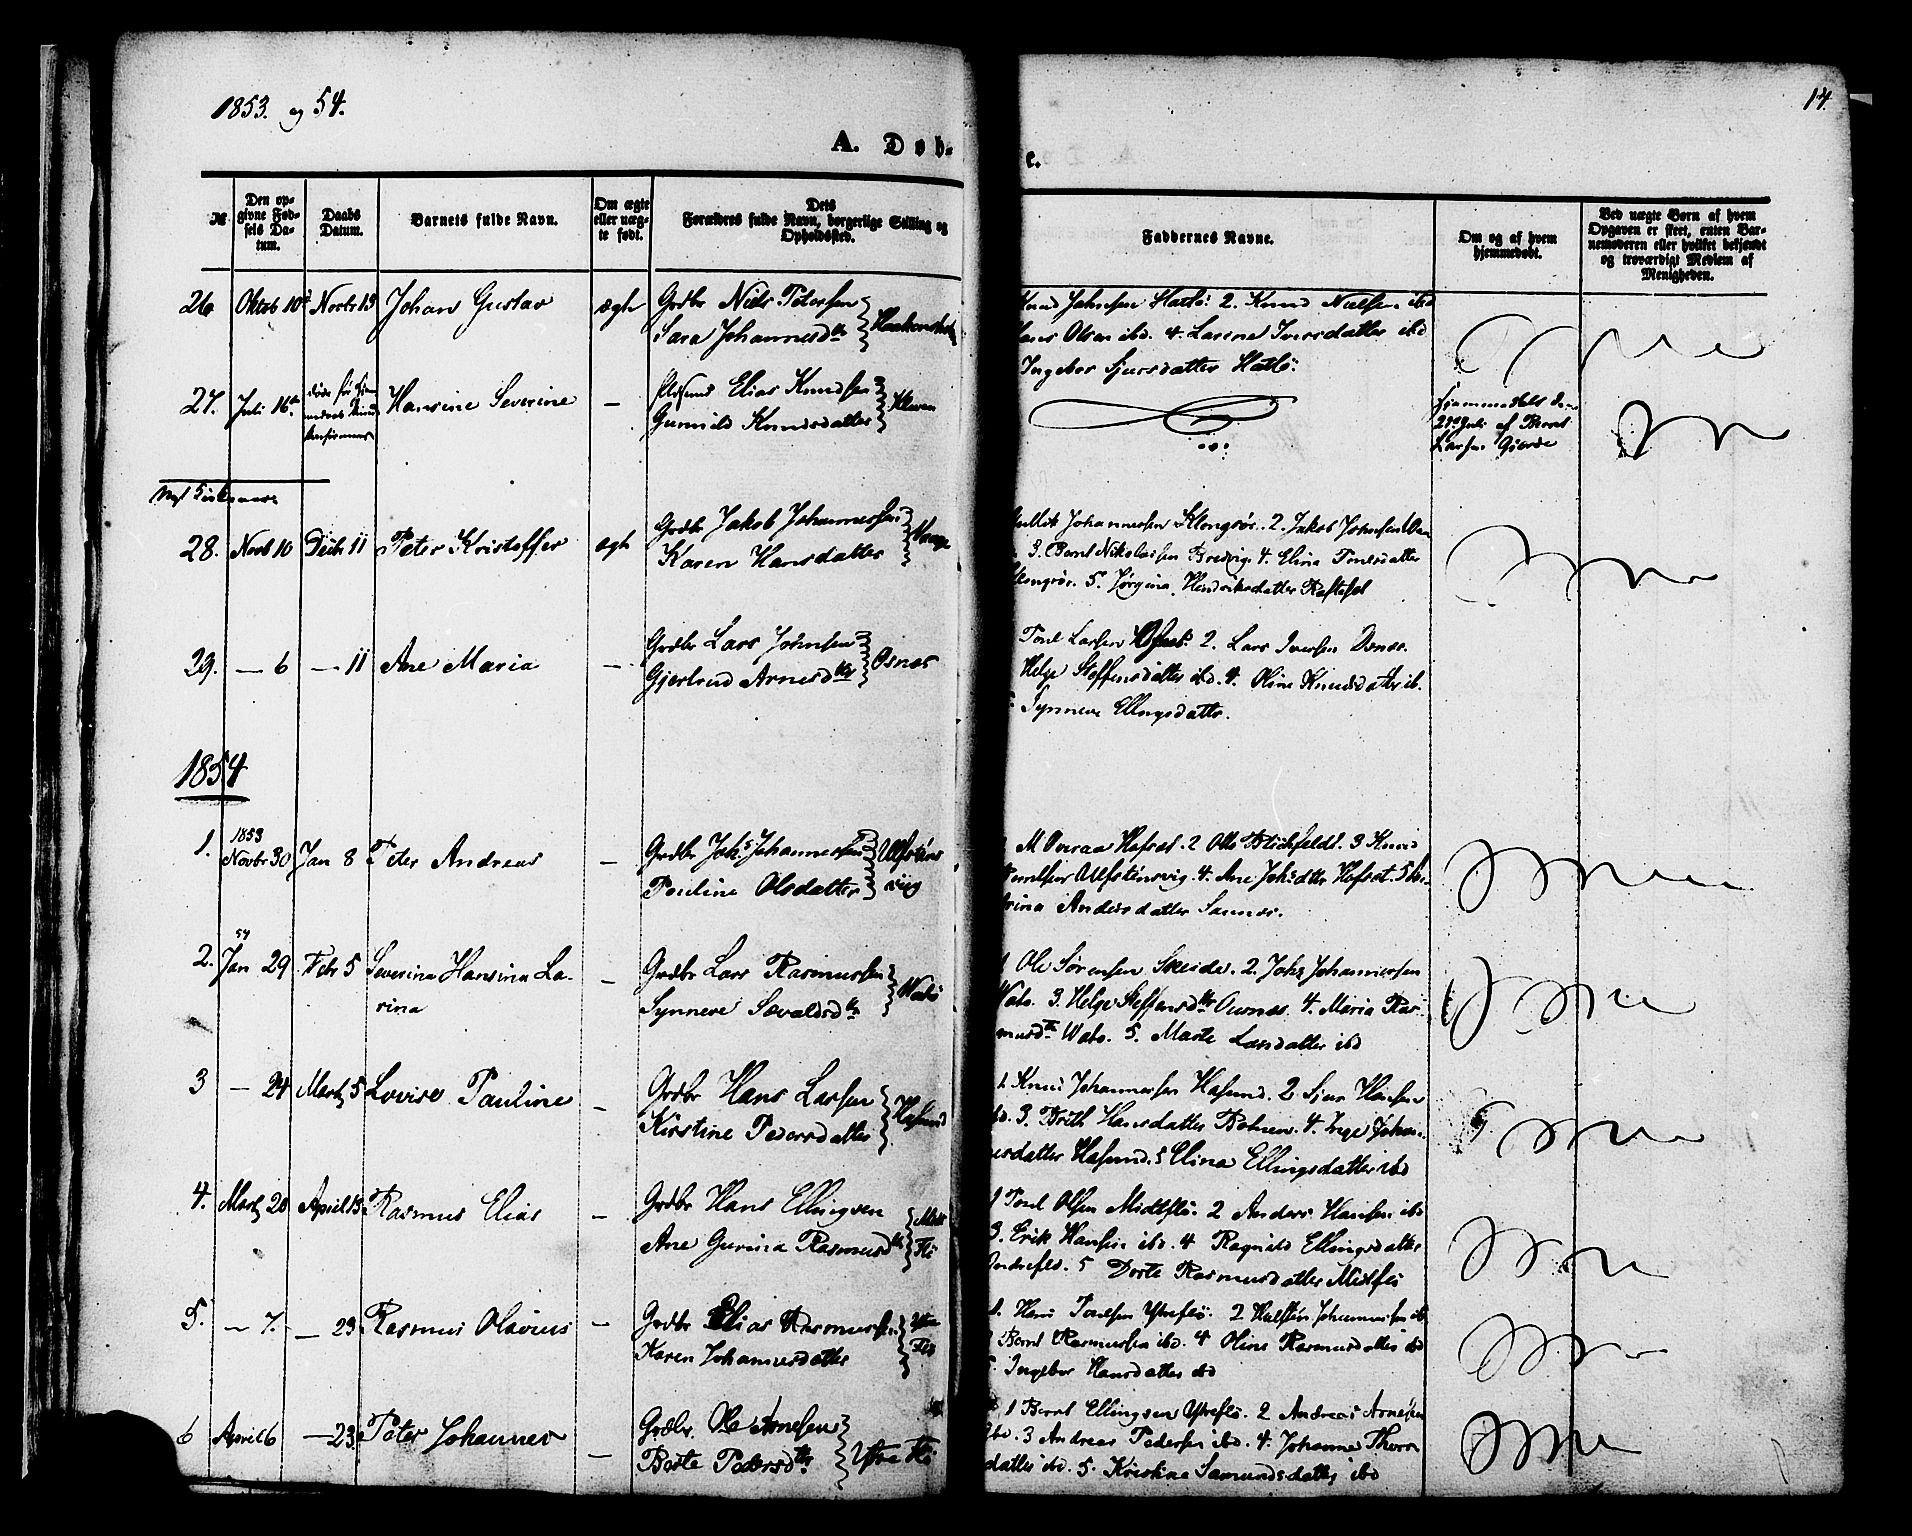 1853. og 54.
14.
A. Døb-
e.
№
Den op-
givne Fød-
sels Da-
tum.
Daabs
Datum.
Barnets fulde Navn.
Om ægte
eller uæg-
te født.
Dets
Forældres fulde Navn, borgerlige Stilling og
Opholdssted.
Faddernes Navne.
Om og af hvem
hjemmedøbt.
Ved uægte Børn af hvem
Opgaven er skeet, enten Bar-
nemoderen eller hvilket bekjendt
og troværdigt Medlem af
Menigheden.
26 Oktob 10 Novbr 13 Johan Gustav ægte Grdbr Niels Petersen
Sara Johannesdtr
Knud Johnsen Hatlø. 2. Knud Nielsen ibd
Hans Olsen ibd. 4. Larine Iversdatter ibd
Ingebor Sjursdatter Hatlø.
27. Juli 16 døde før Hansine Severine — Elias Knudsen
Gunnild Knudsdatter Kleven
Hjemmedøbt
Juli af Bernt
Larsen Gjerde
Nyt Kirkeaar
28. Novb 10 Decb 11 Peter Kristoffer ægte Grdbr Jakob Johannessen
Karen Hansdatter
Johannessen Klongsør. 2. Jakob Johnsen
3. Bernt Nikolaisen Bredvig. 4. Elina Tonesdatter
Klongsør. 5. Jørgina Hendriksdatter Raftesæt
29. — 6 — 11 Ane Maria — Grdbr Lars Johnsen
Gjertrud Arnesdtr Osnes
Poul Larsen Osnes. 2. Lars Iversen Osnes.
Helge Steffensdatter ibd. 4. Oline Knudsdatter ib.
Synneve Ellingsdatter.
1854
1853
1. Novbr 30 Jan 8 Peter Andreas — Grdbr Johs Johannessen
Pauline Olsdatter Ulfstens
viig
M Overaa Hafsæt. 2 Ole Blichfeldt. 3 Knud
Ulfstensvig. 4. Ane Johsdtr Hofset. 5
Andersdatter Sannes.
54
2. Jan 29 Febr 5 Severina Hansina La-
rina — Grdbr Lars Rasmussen
Synneve Sevaldsdtr Watø
1 Ole Sørensen Skeide. 2. Johs Johannessen
Watø. 3. Helge Steffensdtr Aurnes. 4. Maria Ras-
musdtr Watø. 5. Marte Larsdatter ibd
3 — 24 Marts 5 Lovise Pauline — Grdbr Hans Larsen
Kirstine Pedersdatter Hasund
1. Knud Johannessen Hasund. 2 Sjur Hansen
ibd. 3. Brith Hansdatter Botnen. 4. Inge Johan-
nesdatter Hasund. 5 Elina Ellingsdatter ibd
4. Marts 20 April 13 Rasmus Elias — Grdbr Hans Ellingsen
Ane Gurina Rasmusdtr Midt
Flø
1 Poul Olsen Midtflø. 2 Anders Hansen ibd
3. Erik Hansen ibd. 4 Ragnild Ellingsdatter
Indreflø. 5 Dorte Rasmusdatter Midtflø
5. — 7. — 23 Rasmus Olavius — Grdbr Elias Rasmussen
Karen Johannesdatter Ytre
Flø
1. Hans Poulsen Ytreflø. 2 Halsten Johannessen ib
3 Bernt Rasmussen ibd. 4 Oline Rasmusdatter ibd
5. Ingebor Hansdatter ibd
6 April 6 — 23 Peter Johannes — Grdbr. Ole Arnesen
Berte Pedersdtr Ytre Flø
1 Bernt Ellingsen Ytreflø. 2 Andreas Arnesen
ibd. 3 Andreas Pedersen ibd. 4. Johanne Thors-
datter ibd. 5. Kristina Samundsdatter ibd